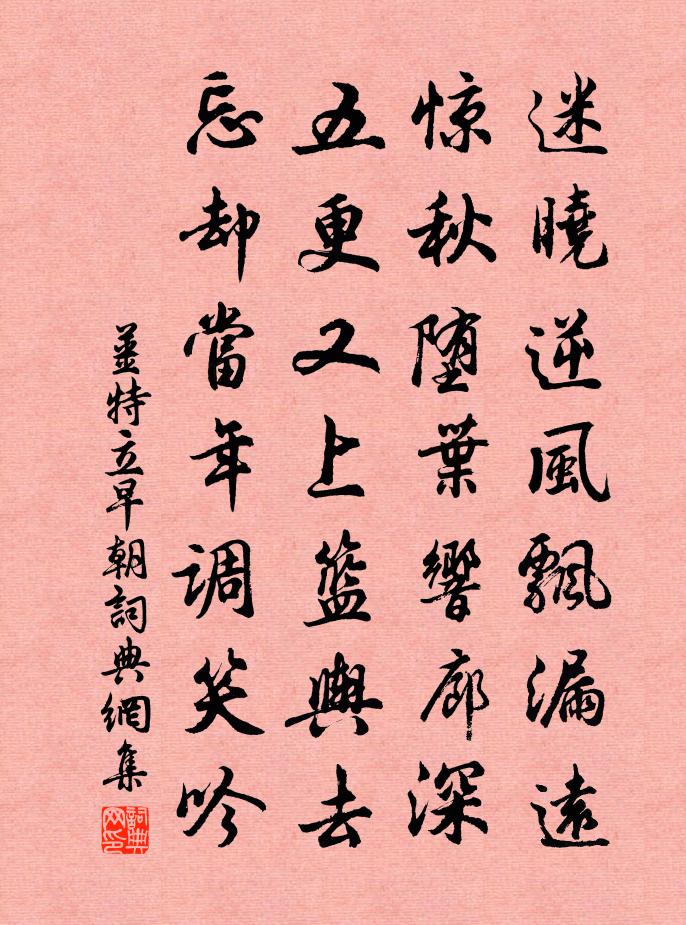 迷曉逆風飄漏遠
惊秋堕葉響廊深
五更又上籃輿去
忘却當年調笑吟
姜特立早朝詞典網集
詞典网印